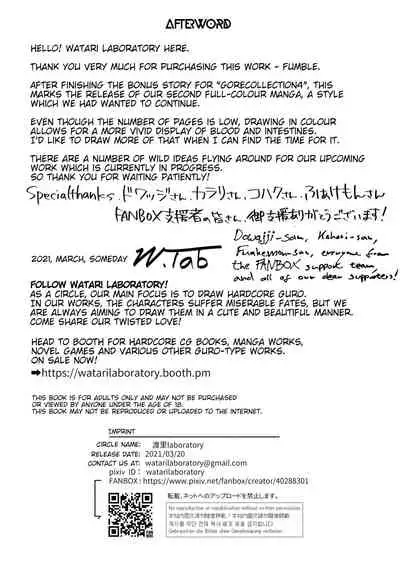 AFTERWORD
HELLO! WATARI LABORATORY HERE.
THANK YOU VERY MUCH FOR PURCHASING THIS WORK - FUMBLE.
AFTER FINISHING THE BONUS STORY FOR "GORECOLLECTION4", THIS
MARKS THE RELEASE OF OUR SECOND FULL-COLOUR MANGA, A STYLE
WHICH WE HAD WANTED TO CONTINUE.
EVEN THOUGH THE NUMBER OF PAGES IS LOW, DRAWING IN COLOUR
ALLOWS FOR A MORE VIVID DISPLAY OF BLOOD AND INTESTINES.
I'D LIKE TO DRAW MORE OF THAT WHEN I CAN FIND THE TIME FOR IT.
THERE ARE A NUMBER OF WILD IDEAS FLYING AROUND FOR OUR UPCOMING
WORK WHICH IS CURRENTLY IN PROGRESS.
SO THANK YOU FOR WAITING PATIENTLY!
Specialthanks ドワッジさん、カラリさん、コハクさん、ふぁけもんさん
FANBOX支援者の皆さん、御支援ありがとうございます!
Dowajji-san,
Funkemon-san, everyone from
the FANBOX support team,
and all of our dear supporters!
2021, MARCH, SOMEDAY W.Tab
FOLLOW WATARI LABORATORY!
AS A CIRCLE, OUR MAIN FOCUS IS TO DRAW HARDCORE GURO.
IN OUR WORKS, THE CHARACTERS SUFFER MISERABLE FATES, BUT WE
ARE ALWAYS AIMING TO DRAW THEM IN A CUTE AND BEAUTIFUL MANNER.
COME SHARE OUR TWISTED LOVE!
HEAD TO BOOTH FOR HARDCORE CG BOOKS, MANGA WORKS,
NOVEL GAMES AND VARIOUS OTHER GURO-TYPE WORKS.
ON SALE NOW!
➡https://watarilaboratory.booth.pm
THIS BOOK IS FOR ADULTS ONLY AND MAY NOT BE PURCHASED
OR VIEWED BY ANYONE UNDER THE AGE OF 18.
THIS BOOK MAY NOT BE REPRODUCED OR UPLOADED TO THE INTERNET.
IMPRINT
CIRCLE NAME: 渡里laboratory
RELEASE DATE: 2021/03/20
CONTACT US AT: watarilaboratory@gmail.com
pixiv ID: watarilaboratory
FANBOX: https://www.pixiv.net/fanbox/creator/40288301
転載、ネットへのアップロードを禁止します。
No reproduction or republication without written permission.